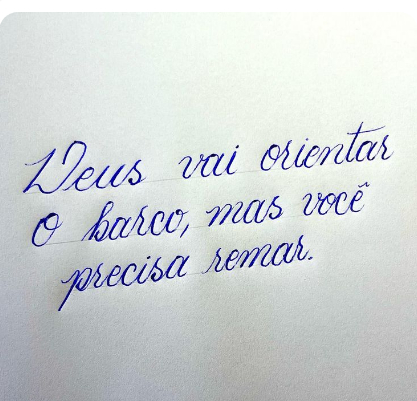 Deus vai orientar
o barco, mas você
precisa remar.